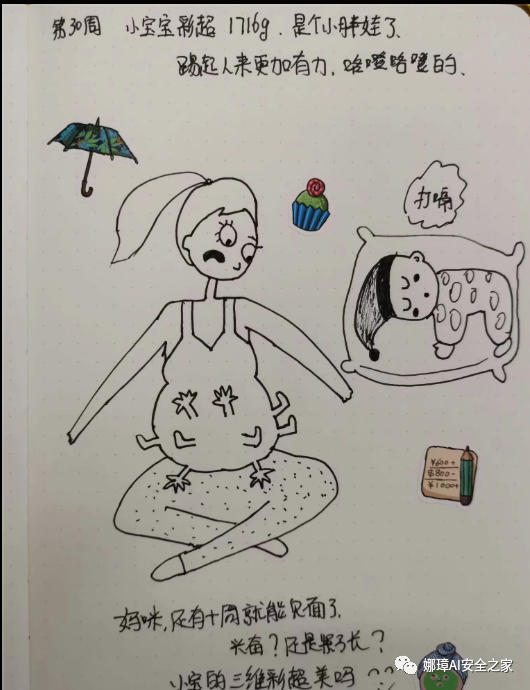 第30周 小宝宝彩超 1716g. 是个小胖娃了、
踢起人来更加有力. 咯噔咯噔的、
打嗝
¥600+
$800-
¥1000+
妈咪, 还有十周就能见面了、
兴奋?还是
小宝的三维彩超美吗 ??
娜璋AI安全之家